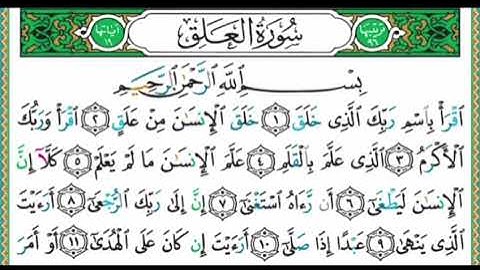 ترتيبها ٩٦ سُورَةُ الْعَلَقِ آياتها ١٩
بِسْمِ اللَّهِ الرَّحْمَٰنِ الرَّحِيمِ
اقْرَأْ بِاسْمِ رَبِّكَ الَّذِي خَلَقَ ١ خَلَقَ الْإِنسَٰنَ مِنْ عَلَقٍ ٢ اقْرَأْ وَرَبُّكَ
الْأَكْرَمُ ٣ الَّذِي عَلَّمَ بِالْقَلَمِ ٤ عَلَّمَ الْإِنسَٰنَ مَا لَمْ يَعْلَمْ ٥ كَلَّآ إِنَّ
الْإِنسَٰنَ لَيَطْغَىٰٓ ٦ أَن رَّءَاهُ اسْتَغْنَىٰٓ ٧ إِنَّ إِلَىٰ رَبِّكَ الرُّجْعَىٰٓ ٨ أَرَءَيْتَ
الَّذِي يَنْهَىٰ ٩ عَبْدًا إِذَا صَلَّىٰٓ ١٠ أَرَءَيْتَ إِن كَانَ عَلَى الْهُدَىٰٓ ١١ أَوْ أَمَرَ